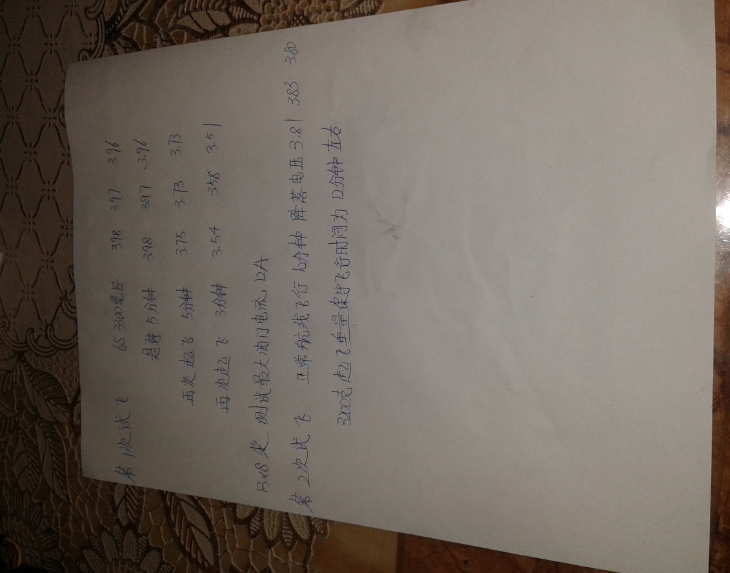 第1次试飞 6S 3300毫安 3.98 3.97 3.96
悬停5分钟 3.98 3.97 3.96
再次起飞 5分钟 3.75 3.73 3.73
再次起飞 3分钟 3.54 3.58 3.51
13x8桨 测试最大油门电流 12A
第2次试飞 正常航线飞行 10分钟 降落电压 3.81 3.83 3.80
起飞重量保守飞行时间为12分钟左右